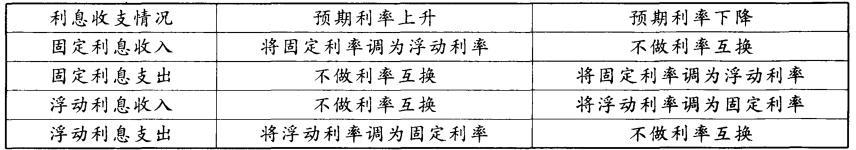 利息收支情况 预期利率上升 预期利率下降
固定利息收入 将固定利率调为浮动利率 不做利率互换
固定利息支出 不做利率互换 将固定利率调为浮动利率
浮动利息收入 不做利率互换 将浮动利率调为固定利率
浮动利息支出 将浮动利率调为固定利率 不做利率互换